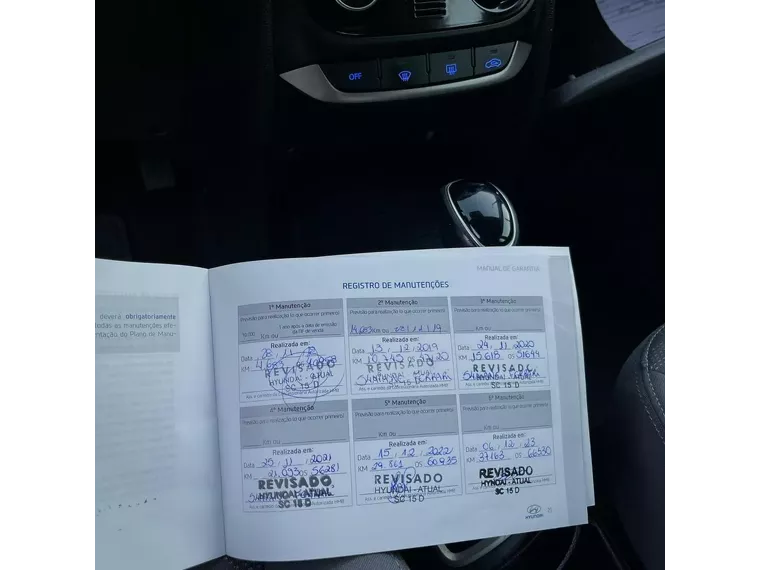 OFF
MANUAL DE GARANTIA
REGISTRO DE MANUTENÇÕES
deverá obrigatoriamente
todas as manutenções efe-
ntação do Plano de Manu-
1ª Manutenção
Previsão para realização (o que ocorrer primeiro)
10.000 Km ou 1 ano após a data de emissão da NF de venda
Realizada em:
Data 28 11
KM 4.683 OS
REVISADO
HYUNDAI - ATUAL
SC 15 D
2ª Manutenção
Previsão para realização (o que ocorrer primeiro)
Km ou
Realizada em:
Data 13 12 2019
KM 10.745 OS
REVISADO
3ª Manutenção
Previsão para realização (o que ocorrer primeiro)
Km ou
Realizada em:
Data 24 11 2020
KM 15618 OS 51694
REVISADO
HYUNDAI - ATUAL
SC 15 D
4ª Manutenção
Previsão para realização (o que ocorrer primeiro)
Km ou
Realizada em:
Data 25 11 2021
KM 21.093 OS 56281
REVISADO
HYUNDAI - ATUAL
SC 15 D
5ª Manutenção
Previsão para realização (o que ocorrer primeiro)
Km ou
Realizada em:
Data 15 12 2022
KM 29.861 OS 60935
REVISADO
HYUNDAI - ATUAL
SC 15 D
Manutenção
Previsão para realização (o que ocorrer primeiro)
Km ou
Realizada em:
Data 06 12 23
KM 37163 OS 66530
REVISADO
HYUNDAI - ATUAL
SC 15 D
HYUNDAI